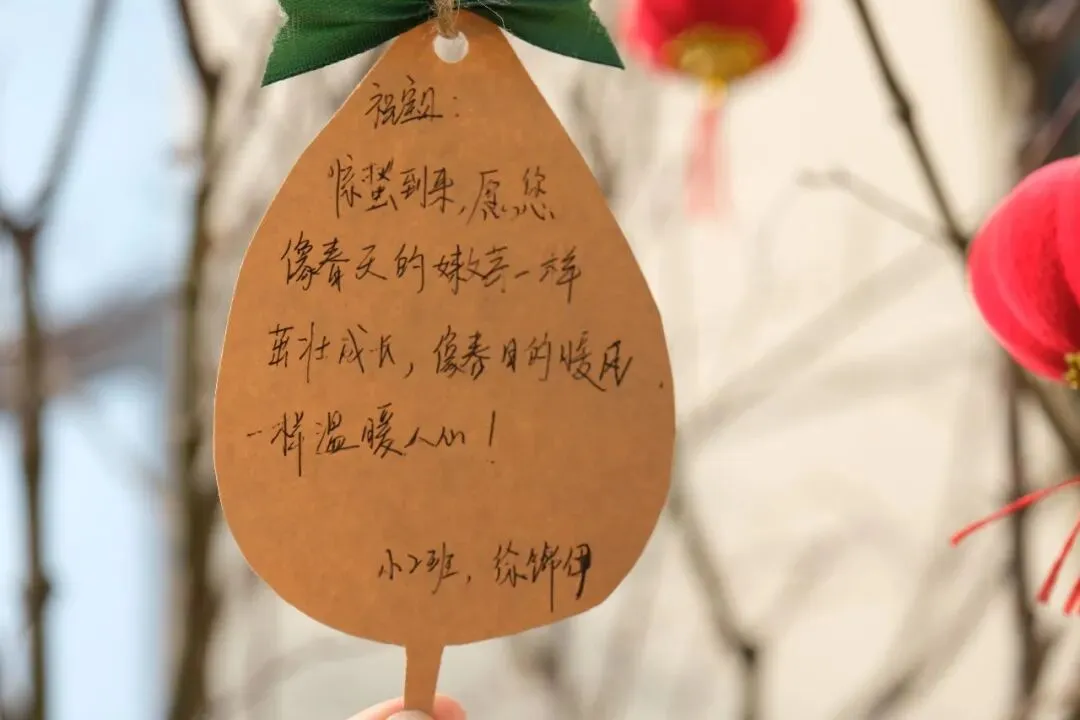 祝宝贝：
惊蛰到来，愿您
像春天的嫩芽一样
茁壮成长，像春日的暖风
一样温暖人心！
小2班，徐锦伊